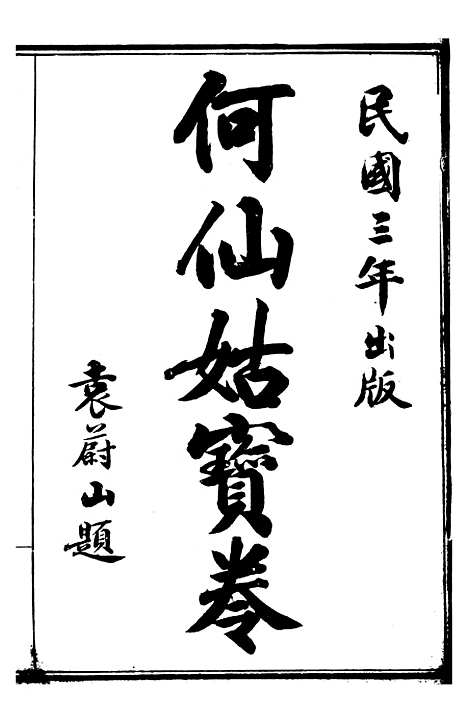 民國三年出版
何仙姑寶卷
袁蔚山題